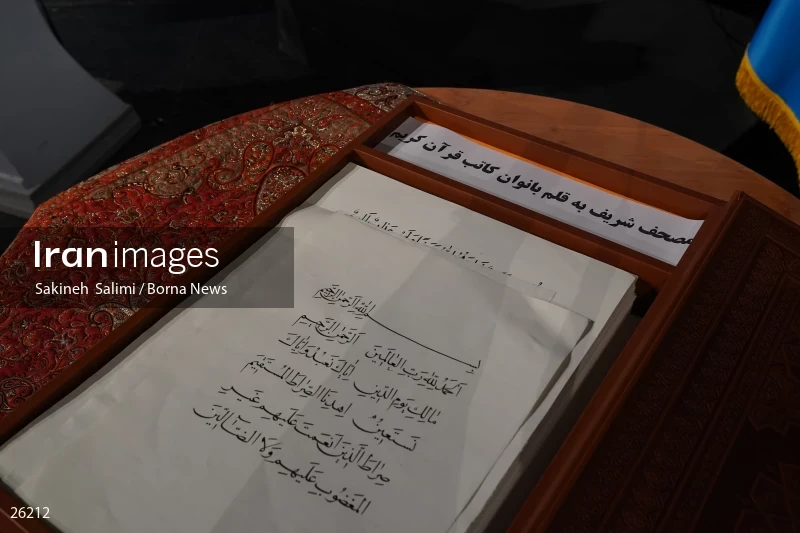 مصحف شریف به قلم بانوان کاتب قرآن کریم
Iran images
Sakineh Salimi / Borna News
بسم الله الرحمن الرحیم
الحمد لله رب العالمین الرحمن الرحیم
مالک یوم الدین ایاک نعبد وایاک
نستعین اهدنا الصراط المستقیم
صراط الذین انعمت علیهم غیر
المغضوب علیهم ولا الضالین
26212